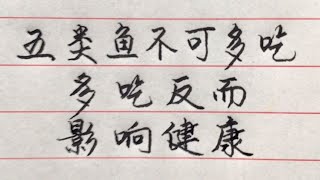 五类鱼不可多吃
多吃反而
影响健康